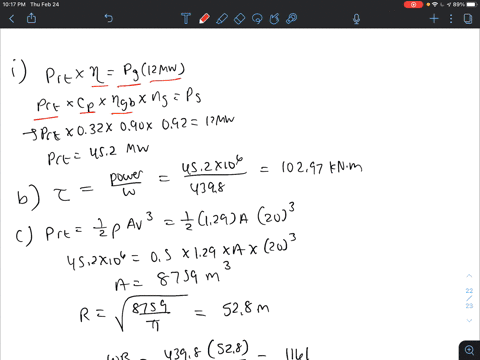 10:17 PM Thu Feb 24
89%
i) Prt × η = Pg (12MW)
Prt × Cp × ηgb × ηg = Pg
→ Prt × 0.32 × 0.90 × 0.92 = 12MW
Prt = 45.2 MW
b) τ = power/ω = 45.2×10⁶/439.8 = 102.97 kN·m
c) Prt = 1/2 ρ AV³ = 1/2 (1.29) A (20)³
45.2×10⁶ = 0.5 × 1.29 × A × (20)³
A = 8759 m³
R = √(8759/π) = 52.8 m
ωR = 439.8 (52.8) = 1161
22
/
23